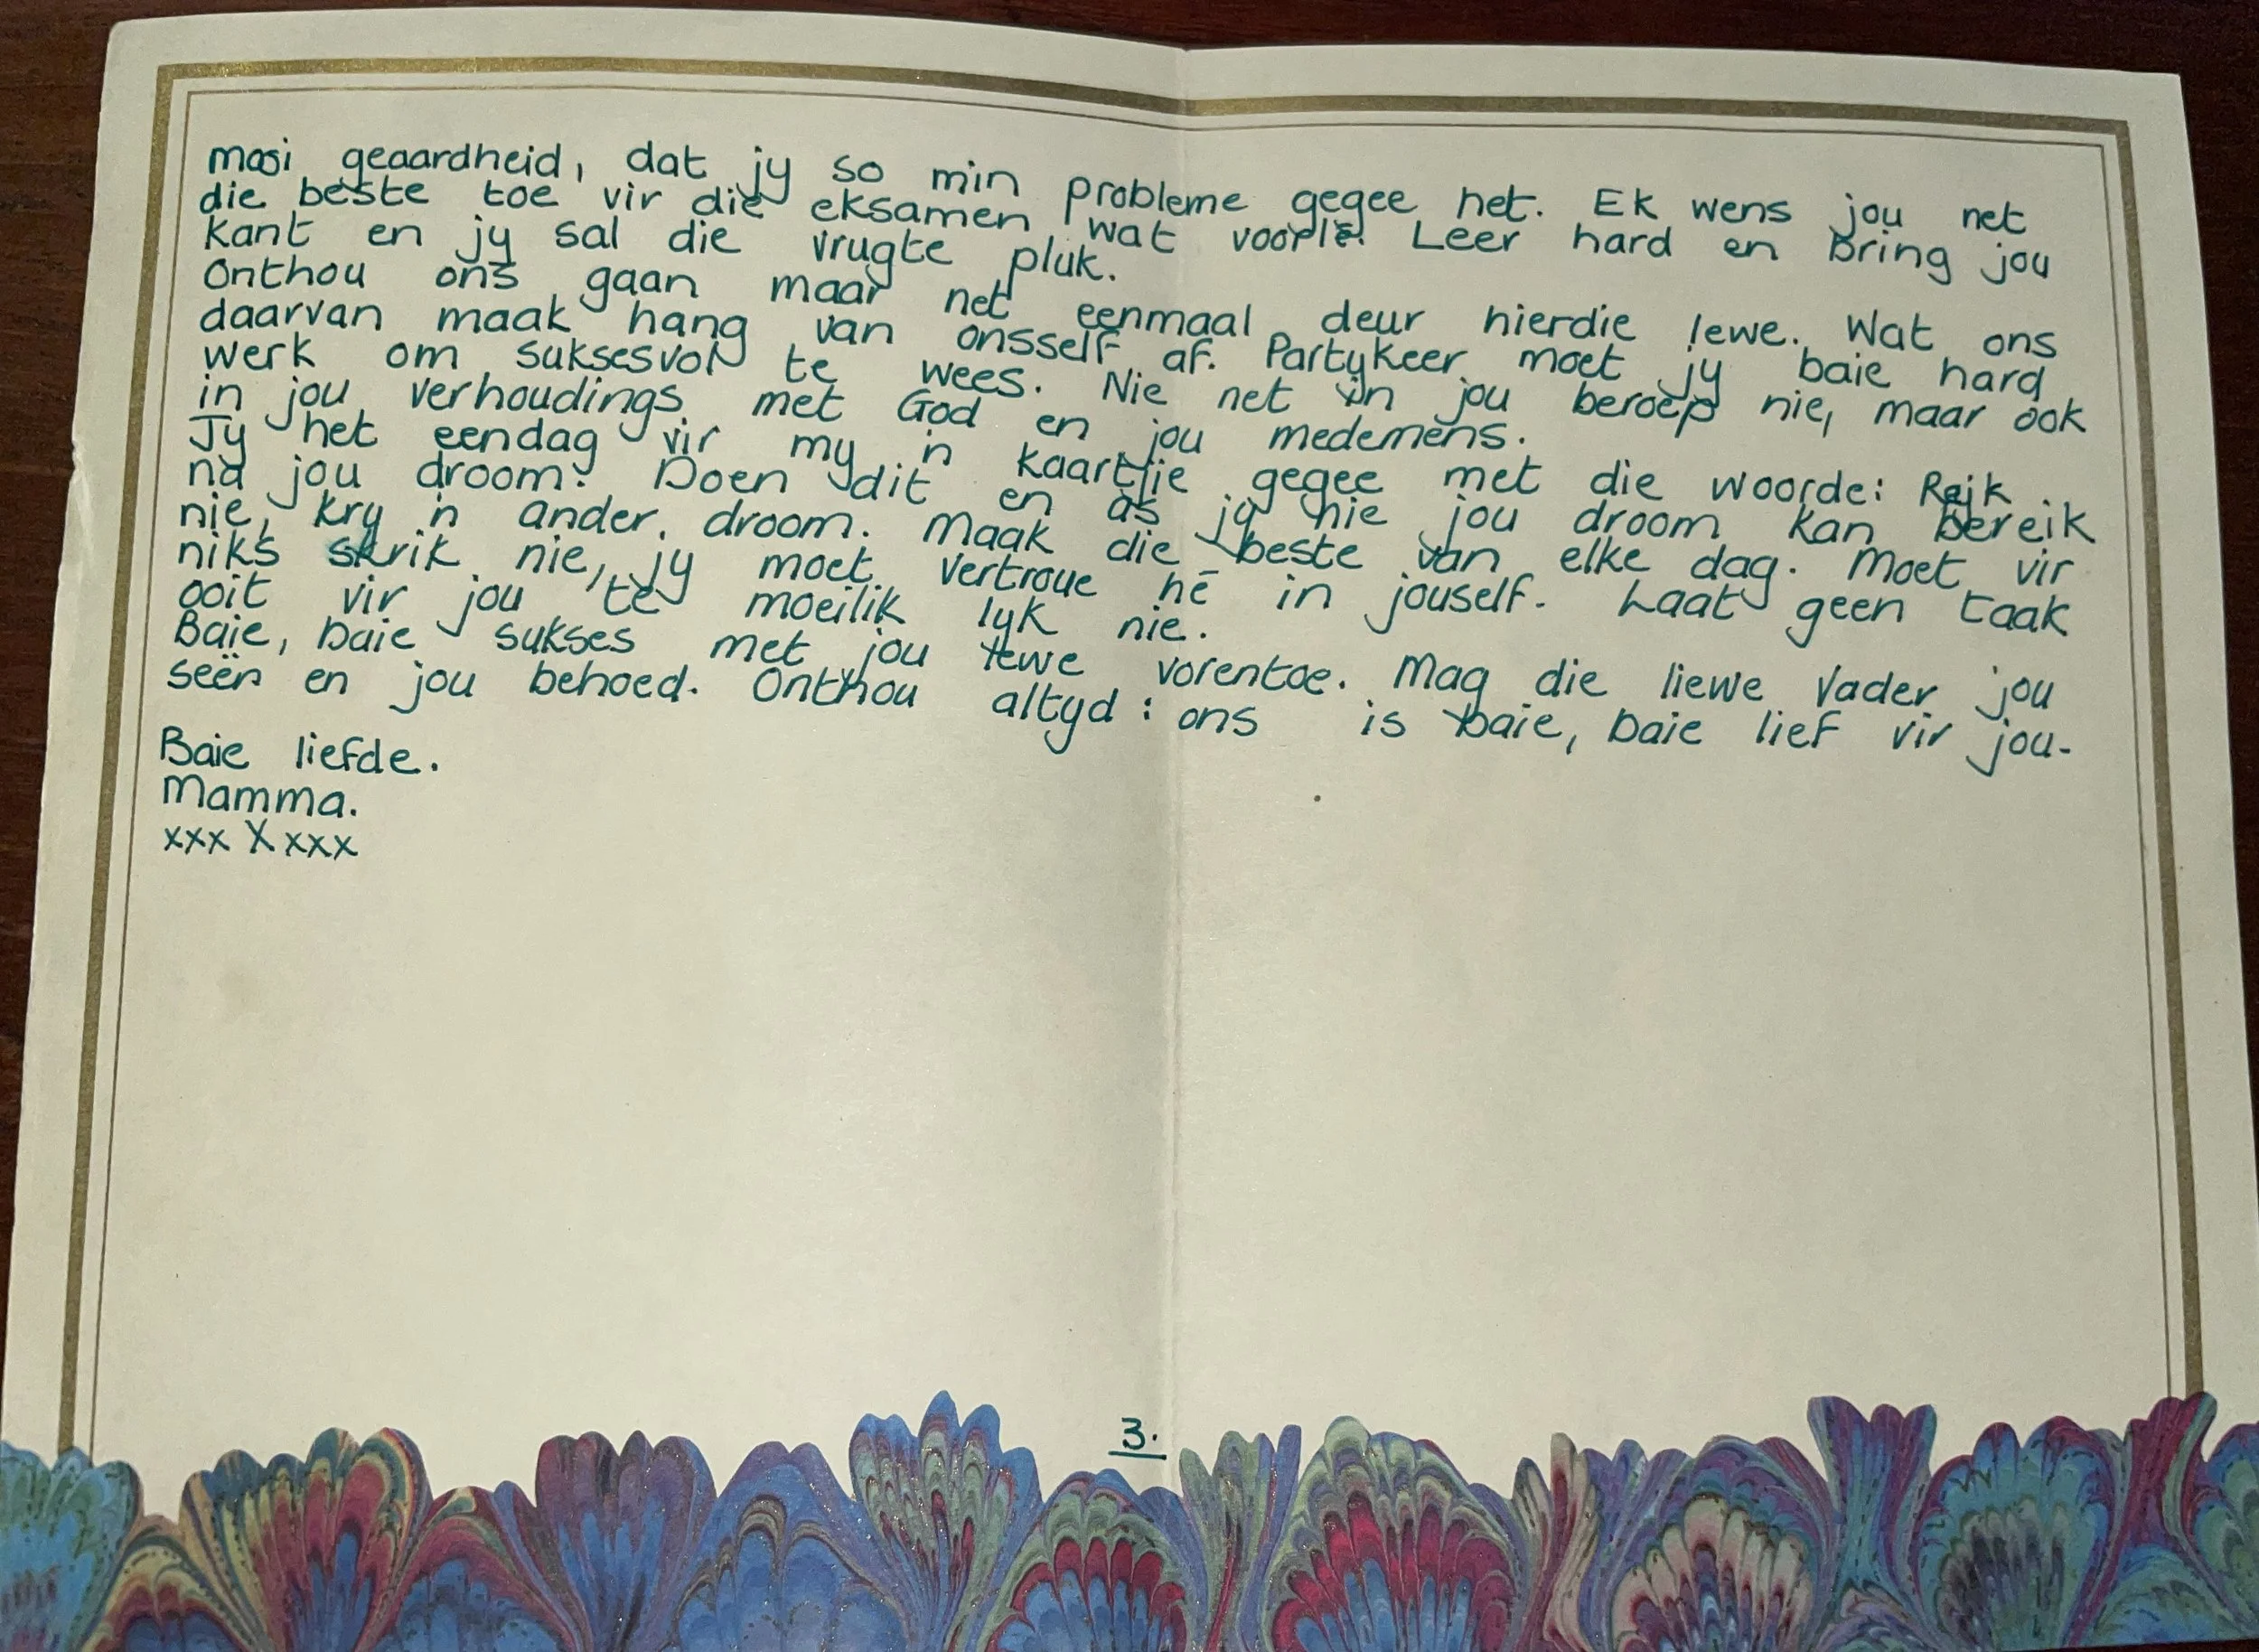 mooi geaardheid, dat jy so min probleme gegee het. Ek wens jou net
die beste toe vir die eksamen wat voorlê. Leer hard en bring jou
kant en jy sal die vrugte pluk.
Onthou ons gaan maar net eenmaal deur hierdie lewe. Wat ons
daarvan maak hang van onsself af. Partykeer moet jy baie hard
werk om suksesvol te wees. Nie net in jou beroep nie, maar ook
in jou verhoudings met God en jou medemens.
Jy het eendag vir my 'n kaartjie gegee met die woorde: Reik
na jou droom. Doen dit en as jy nie jou droom kan bereik
nie, kry 'n ander droom. Maak die beste van elke dag. Moet vir
niks skrik nie, jy moet vertroue hê in jouself. Laat geen taak
ooit vir jou te moeilik lyk nie.
Baie, baie sukses met jou lewe vorentoe. Mag die liewe Vader jou
seën en jou behoed. Onthou altyd: ons is baie, baie lief vir jou.
Baie liefde.
Mamma.
xxx X xxx
3.